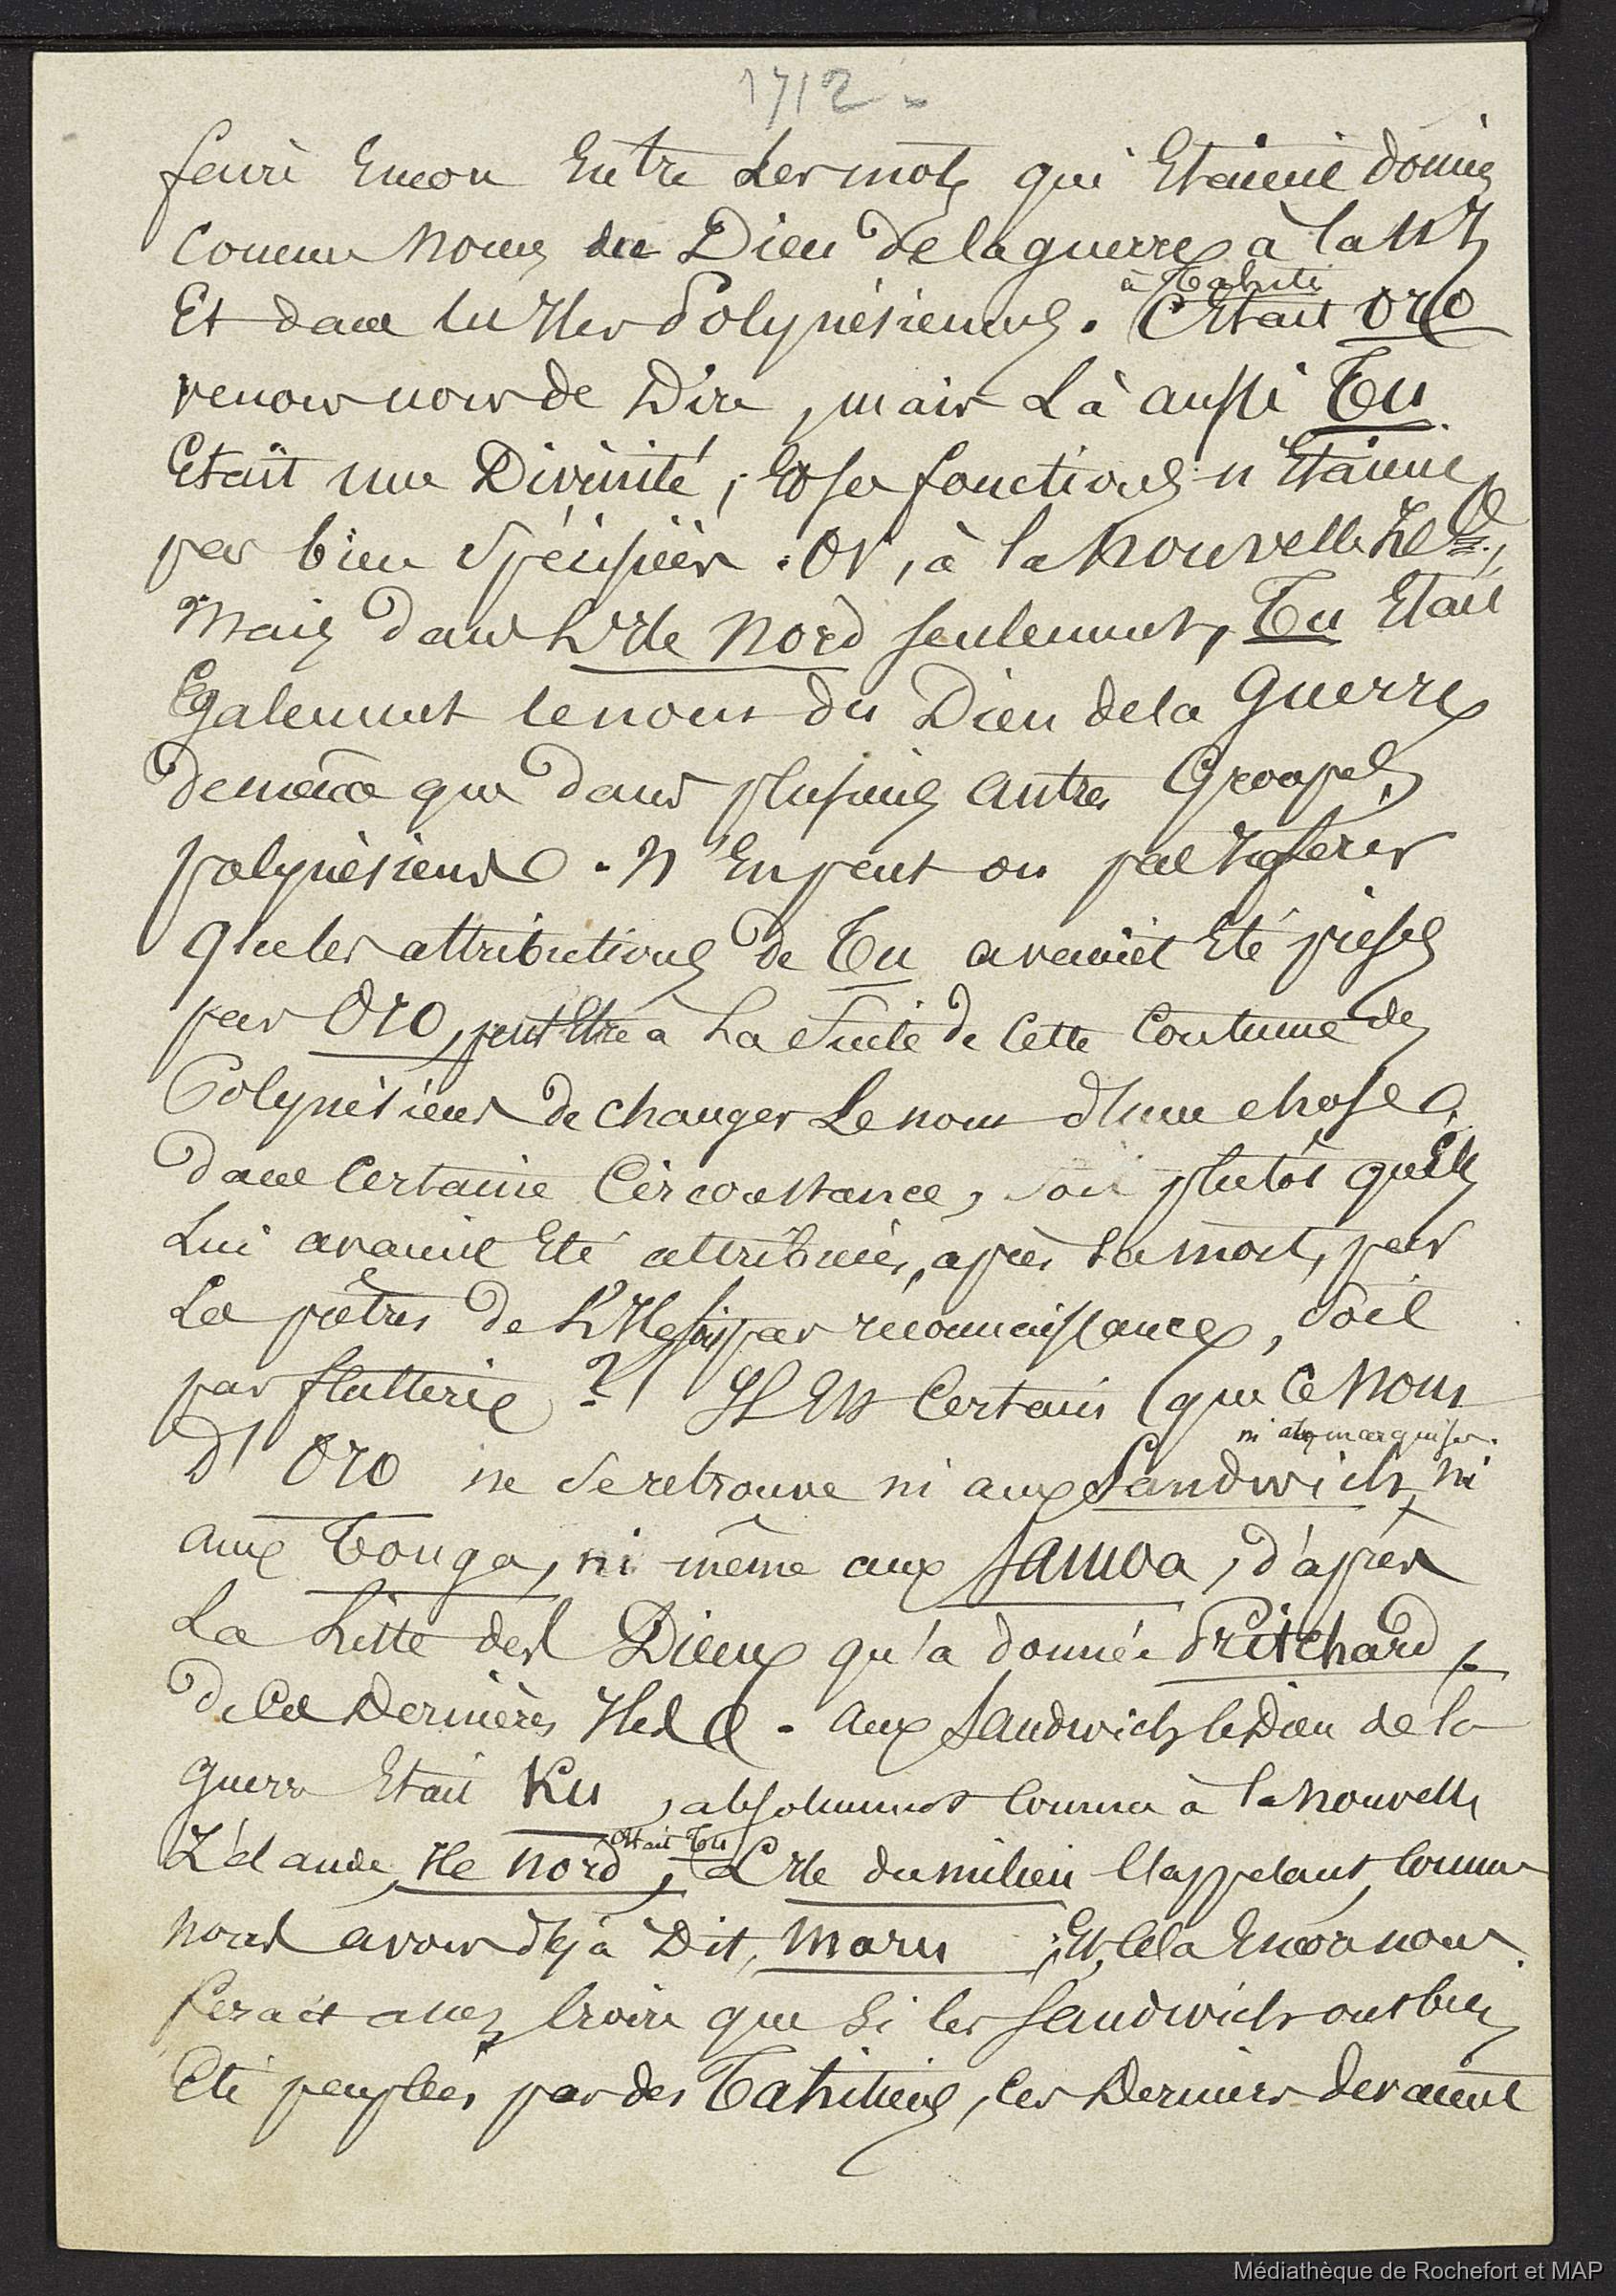 1712 -
faire encore entre les mots qui étaient donnés
comme noms du Dieu de la guerre à la N.Z.
Et dans les Iles Polynésiennes. C'était Oro
à Tahiti
venons nous de Dire, mais là aussi Tu
Etait une Divinité, et ses fonctions n'étaient
pas bien spécifiées. Or, à la Nouvelle Zlde,
Mais dans l'Ile Nord seulement, Tu était
Egalement le nom du Dieu de la guerre
de même que dans plusieurs autres Groupes
polynésiens. N'en peut on pas inférer
que les attributions de Tu avaient été prises
par Oro, peut être à la suite de cette coutume des
Polynésiens de changer le nom d'une chose
dans certaine circonstance, soit plutôt qu'elles
lui avaient été attribuées, après sa mort, par
les prêtres de l'Ile soit par reconnaissance, soit
par flatterie ? Il est certain que ce nom
ni aux marquises.
D'Oro ne se retrouve ni aux Sandwich, ni
aux Tonga, ni même aux Samoa, d'après
la liste des Dieux qu'a donnée Pritchard
de ces dernières Iles. Aux Sandwich, le Dieu de la
guerre était Ku, absolument comme à la Nouvelle
était Tu
Zélande, Ile Nord, l'Ile du milieu l'appelant, comme
nous avons déjà Dit, Maru ; Et cela encore nous
ferait assez croire que si les Sandwich ont bien
Eté peuplées par des Tahitiens, ces derniers devaient
Médiathèque de Rochefort et MAP